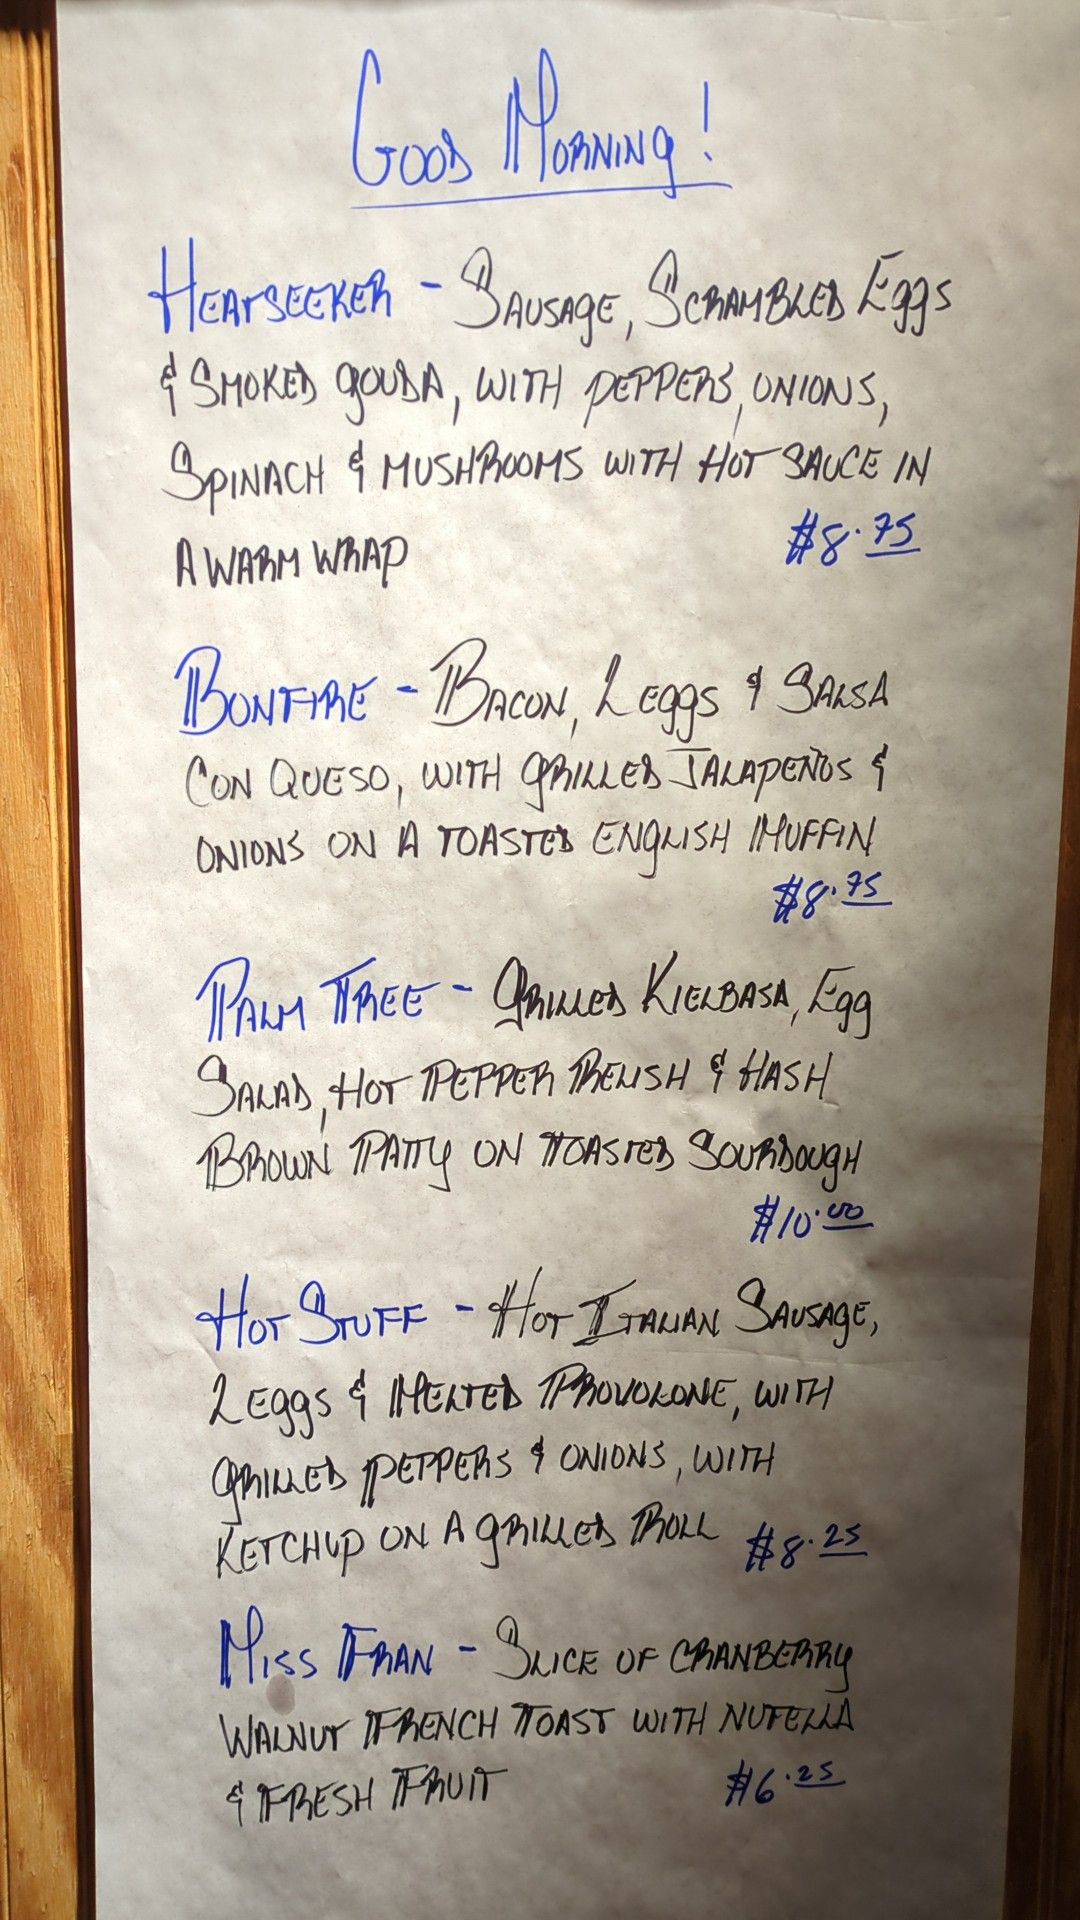 Good Morning!
Heatseeker - Sausage, Scrambled Eggs
& Smoked Gouda, with peppers, onions,
Spinach & Mushrooms with Hot Sauce in
a warm wrap $8.75
Bonfire - Bacon, 2 eggs & Salsa
Con Queso, with grilled Jalapeños &
onions on a toasted English Muffin
$8.75
Palm Tree - Grilled Kielbasa, Egg
Salad, Hot Pepper Relish & Hash
Brown Patty on toasted Sourdough
$10.00
Hot Stuff - Hot Italian Sausage,
2 eggs & Melted Provolone, with
grilled peppers & onions, with
Ketchup on a grilled Roll $8.25
Miss Fran - Slice of cranberry
Walnut French Toast with Nutella
& Fresh Fruit $6.25